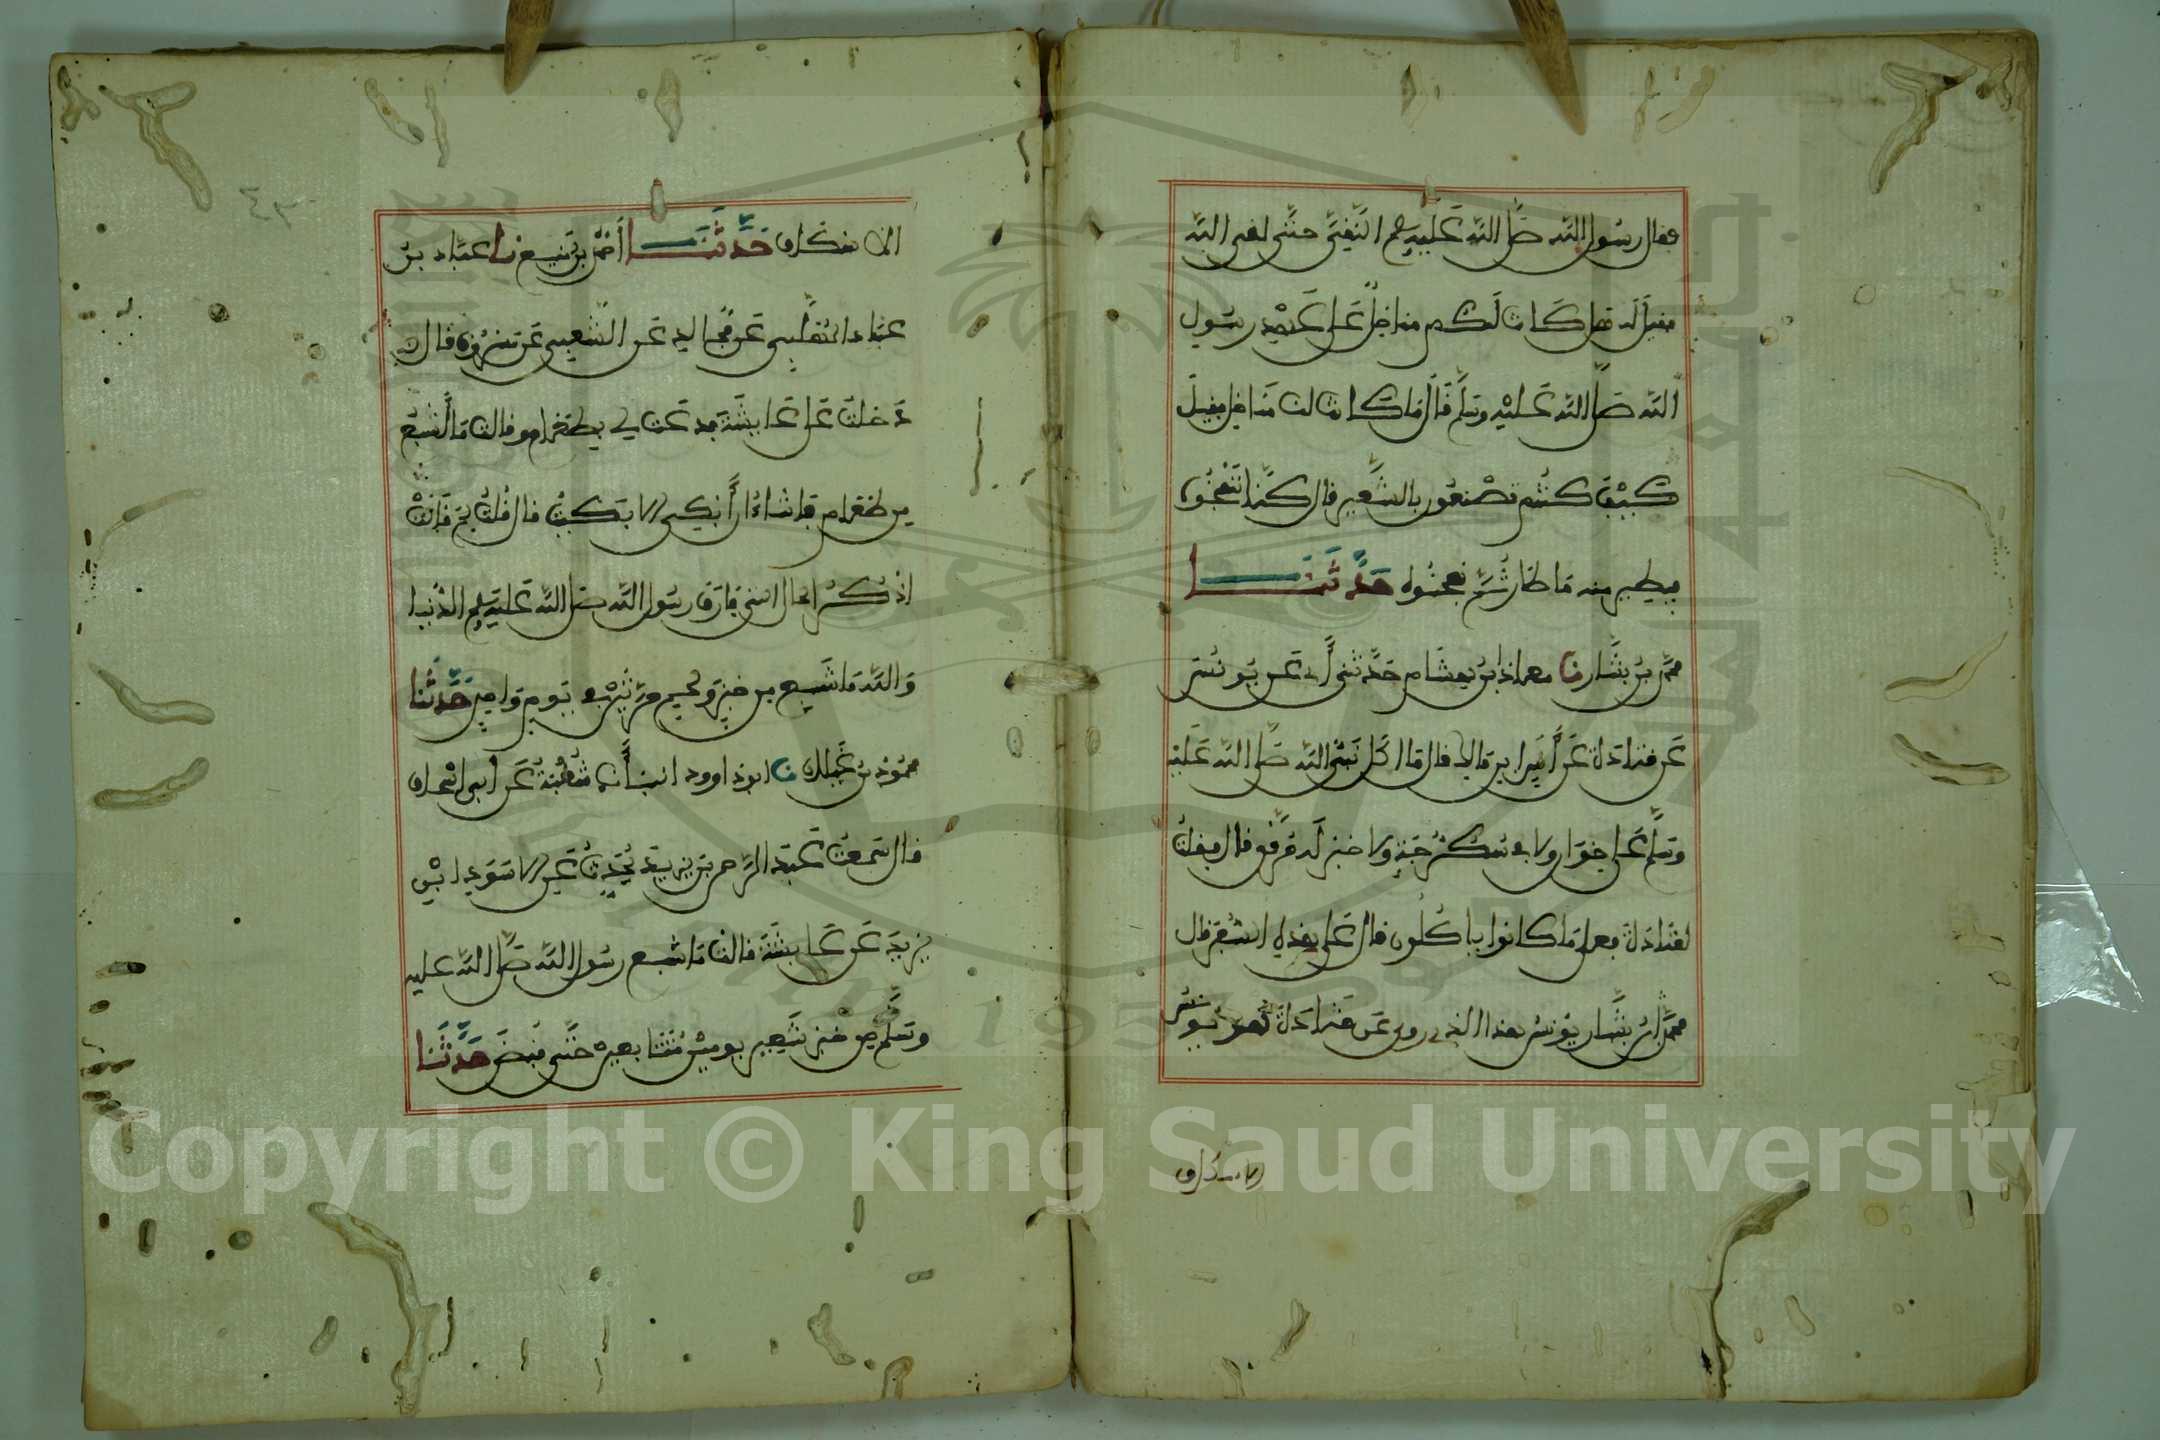 فقال رسول الله صلى الله عليه وسلم النقي حتى لقي الله
فقيل له هل كانت لكم مناخل على عهد رسول
الله صلى الله عليه وسلم قال ما كانت لنا مناخل فقيل
كيف كنتم تصنعون بالشعير قال كنا ننفخه
فيطير منه ما طار ثم نعجنه حدثنا
محمد بن بشار نا معاذ بن هشام حدثني أبي عن يونس
عن قتادة عن أنس ابن مالك قال ما أكل نبي الله صلى الله عليه
وسلم على خوان ولا في سكرجة ولا خبز له مرقق قال فقلت
لقتادة فعلى ما كانوا يأكلون قال على هذه السفر قال
محمد ابن بشار يونس هذا الذي روى عن قتادة هو يونس
الاسكاف
الاسكاف حدثنا أحمد بن منيع نا عباد بن
عباد المهلبي عن مجالد عن الشعبي عن مسروق قال
دخلت على عايشة فدعت لي بطعام وقالت ما أشبع
من طعام فأشاء أن أبكي إلا بكيت قال قلت لم قالت
اذكر الحال التي فارق رسول الله صلى الله عليه وسلم الدنيا
والله ما شبع من خبز ولحم مرتين في يوم واحد حدثنا
محمود بن غيلان نا ابو داوود انبأنا شعبة عن أبي إسحاق
قال سمعت عبد الرحمن بن يزيد يحدث عن الاسود ابن
يزيد عن عايشة قالت ما شبع رسول الله صلى الله عليه
وسلم من خبز شعير يومين متتابعين حتى قبض حدثنا
Copyright © King Saud University